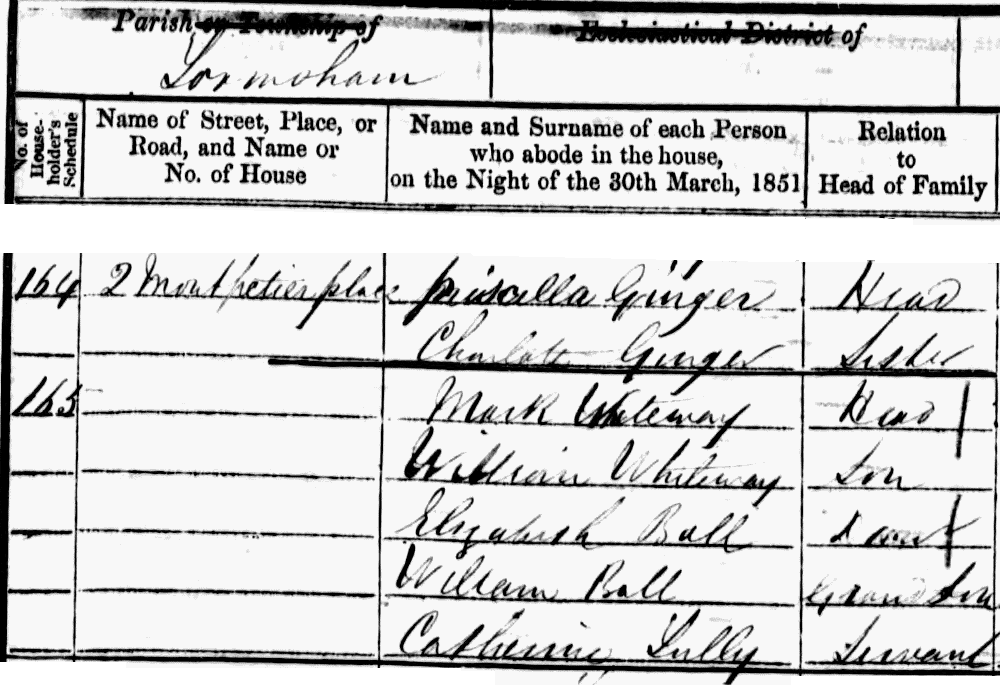 Parish or Township of
Ecclesiastical District of
Tormoham
No. of House-holder's Schedule
Name of Street, Place, or Road, and Name or No. of House
Name and Surname of each Person who abode in the house, on the Night of the 30th March, 1851
Relation to Head of Family
164 2 Montpelier place Priscilla Ginger Head
Charlotte Ginger Sister
165 Mark Whiteway Head
William Whiteway Son
Elizabeth Ball Daur
William Ball Grand Son
Catherine Lully Servant